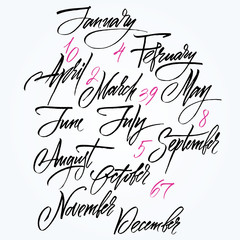 January
10 4 February
April 2 March 39 May
June July 8
5 September
August October
67
November December